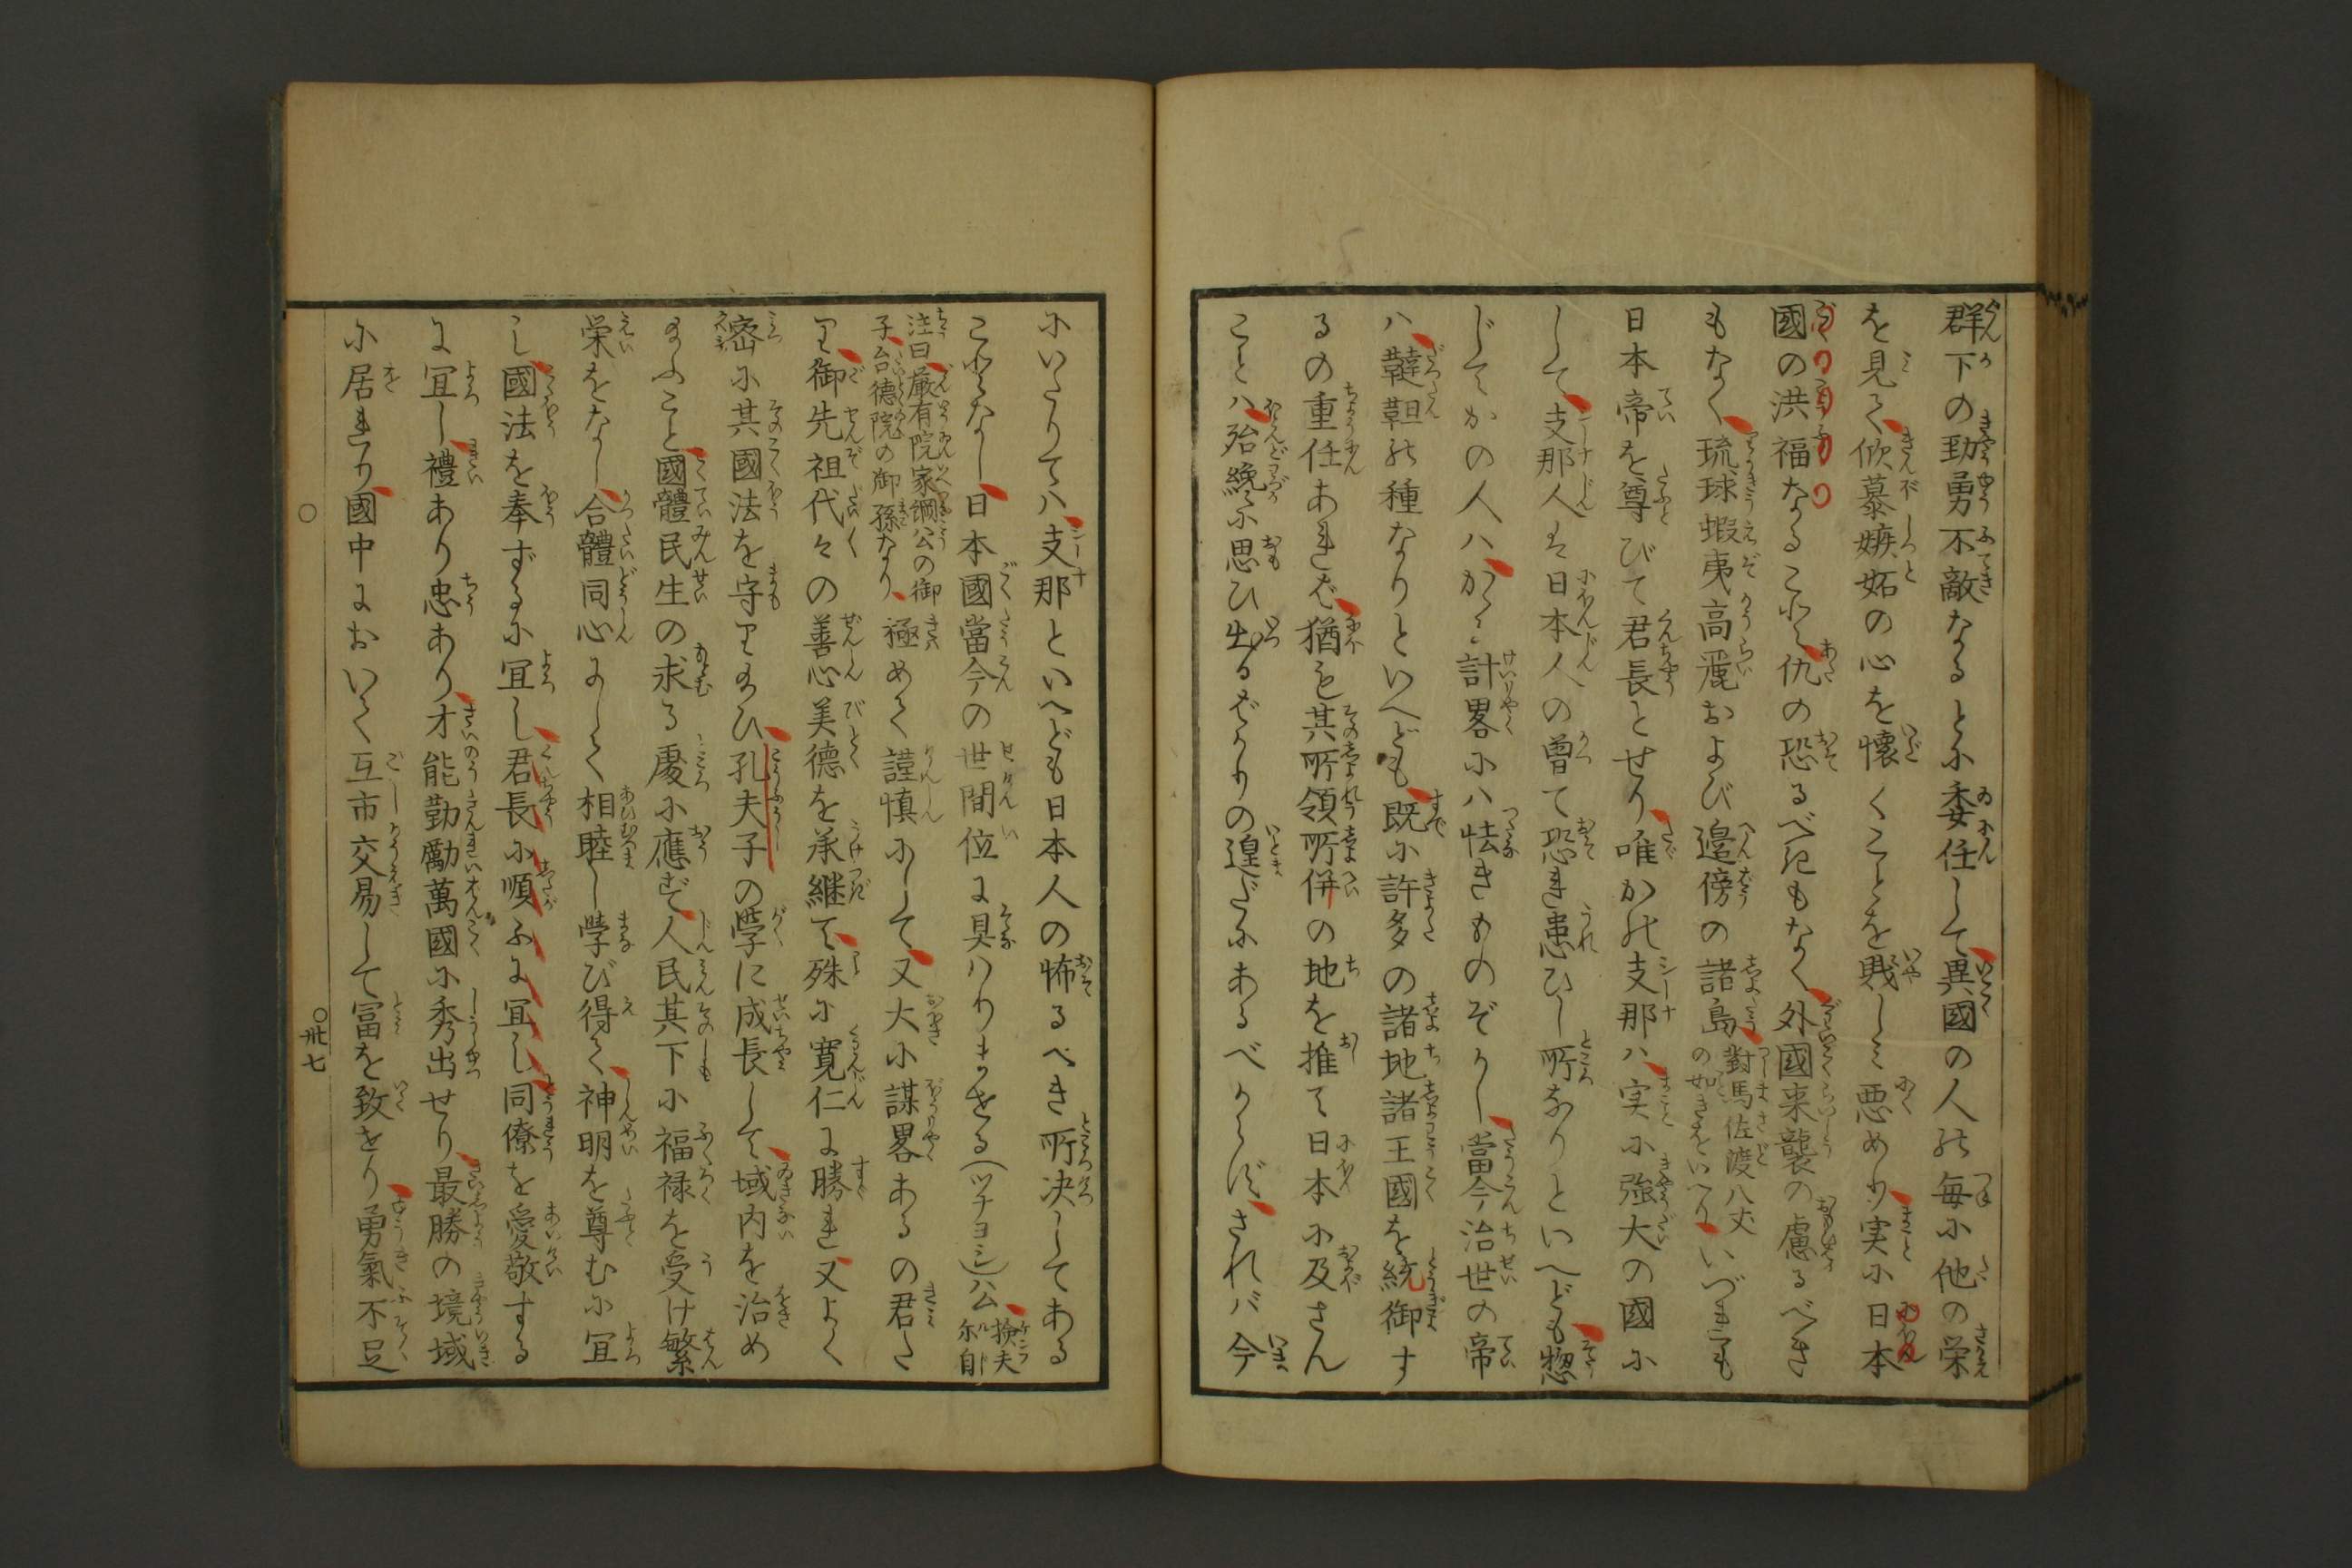 群下の勁勇不敵なるとに委任して異國の人の毎に他の栄
を見て傾慕嫉妬の心を懐くことを賎しミ悪めり実に日本
國の洪福なることハ仇の恐るべきもなく外國来襲の慮るべき
もなく琉球蝦夷高麗および邊傍の諸島對馬佐渡八丈の如きをいへりいづれも
日本帝を尊びて君長とせり唯かの支那ハ実に強大の國に
して支那人は日本人の曽て恐れ患ひし所なりといへども惣
じてかの人ハかく計畧にハ怯きものぞかし當今治世の帝
ハ韃靼の種なりといへども既に許多の諸地諸王國を統御す
るの重任あれば猶も其所領所併の地を推て日本に及さん
ことハ殆纔に思ひ出るばかりの遑だにあるべからずされバ今
にいたりてハ支那といへども日本人の怖るべき所决してある
ことなし日本國當今の世間位に具ハりませる(ツナヨシ)公撿夫尓自
注曰厳有院家綱公の御子台徳院の御孫なり極めて謹慎にして又大に謀畧あるの君た
り御先祖代々の善心美德を承継て殊に寛仁に勝れ又よく
密に其國法を守り玉ひ孔夫子の學に成長して域内を治め
玉ふこと國體民生の求る處に應ず人民其下に福禄を受け繁
栄をなし合體同心にして相睦し學び得て神明を尊むに宜
し國法を奉ずるに宜し君長に順ふに宜し同僚を愛敬する
に宜し禮あり忠あり才能勤勵萬國に秀出せり最勝の境域
に居れり國中において互市交易して富を致せり勇氣不足
〇 〇卅七